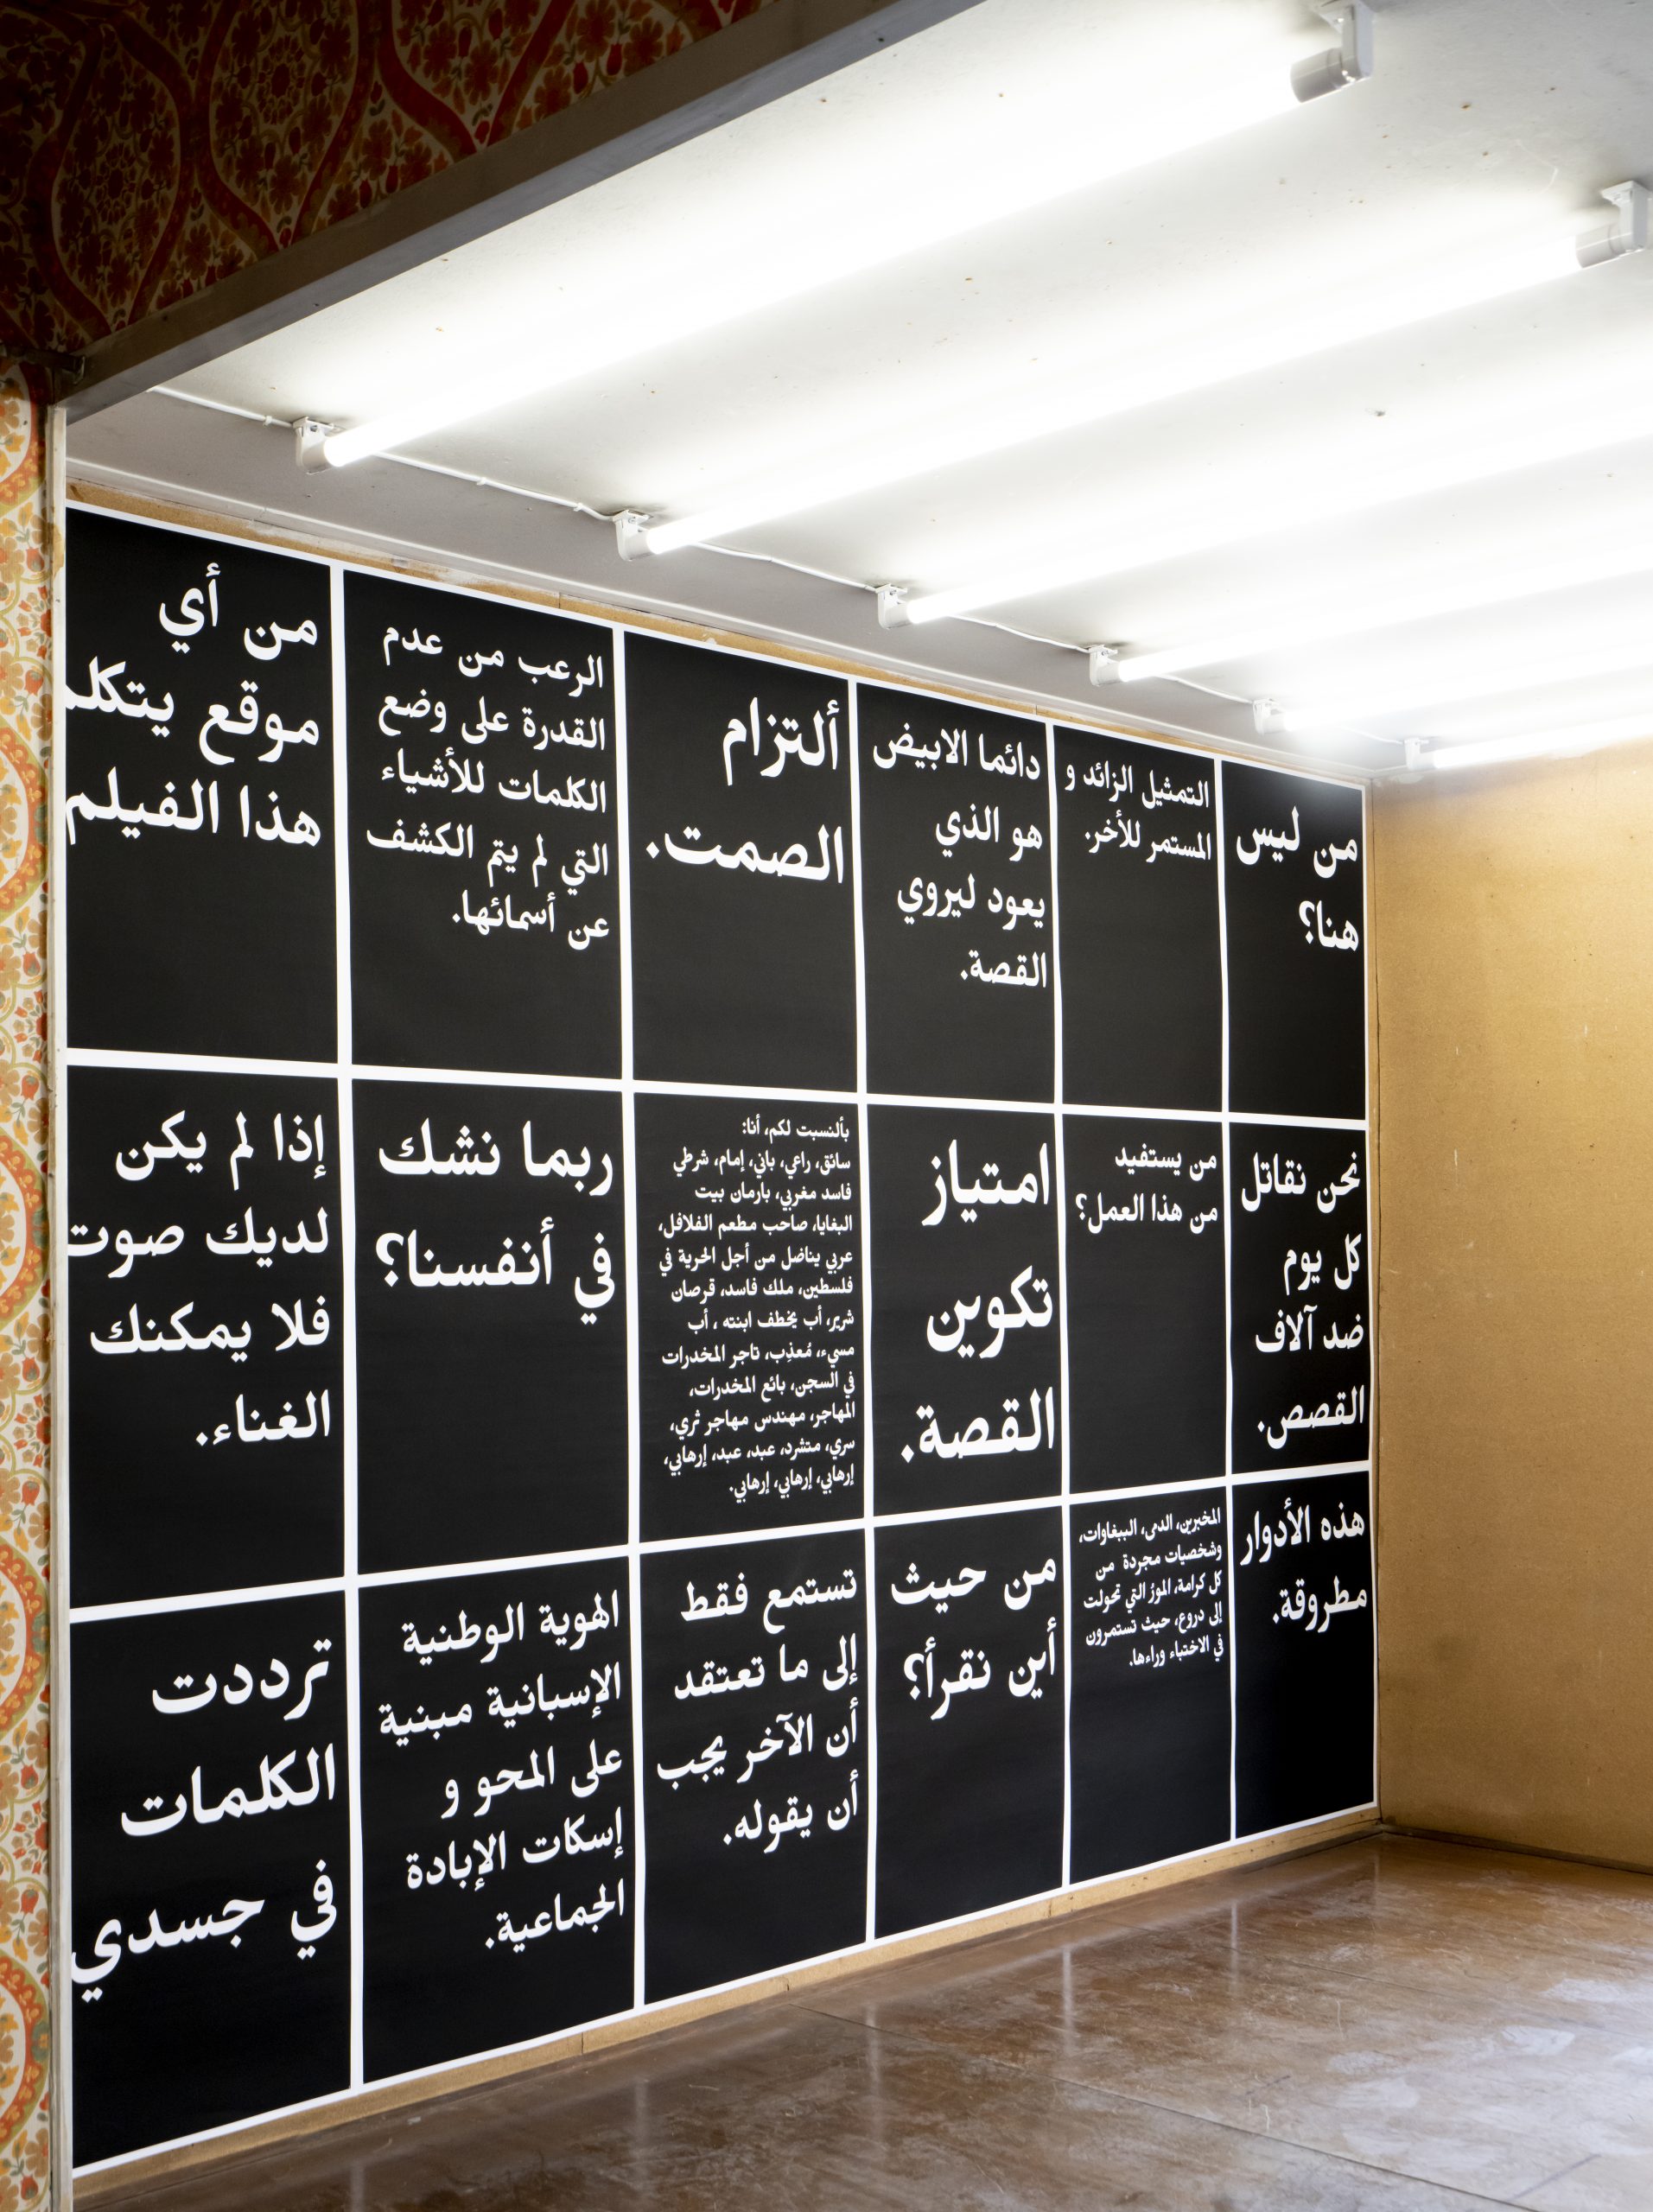 من ليس
هنا؟
التمثيل الزائد و
المستمر للأخر.
دائما الابيض
هو الذي
يعود ليروي
القصة.
ألتزام
الصمت.
الرعب من عدم
القدرة على وضع
الكلمات للأشياء
التي لم يتم الكشف
عن أسمائها.
من أي
موقع يتكلم
هذا الفيلم
نحن نقاتل
كل يوم
ضد آلاف
القصص.
من يستفيد
من هذا العمل؟
امتياز
تكوين
القصة.
بألنسبت لكم، أنا:
سائق، راعي، باني، إمام، شرطي
فاسد مغربي، بارمان بيت
البغايا، صاحب مطعم الفلافل،
عربي يناضل من أجل الحرية في
فلسطين، ملك فاسد، قرصان
شرير، أب يخطف ابنته ، أب
مسيء، مُعذِب، تاجر المخدرات
في السجن، بائع المخدرات،
المهاجر، مهندس مهاجر ثري،
سري، متشرد، عبد، عبد، إرهابي،
إرهابي، إرهابي، إرهابي.
ربما نشك
في أنفسنا؟
إذا لم يكن
لديك صوت
فلا يمكنك
الغناء.
هذه الأدوار
مطروقة.
المخبرين، الدمى، الببغاوات،
وشخصيات مجردة من
كل كرامة، الموز التي تحولت
إلى دروع، حيث تستمرون
في الاختباء وراءها.
من حيث
أين نقرأ؟
تستمع فقط
إلى ما تعتقد
أن الآخر يجب
أن يقوله.
الهوية الوطنية
الإسبانية مبنية
على المحو و
إسكات الإبادة
الجماعية.
ترددت
الكلمات
في جسدي